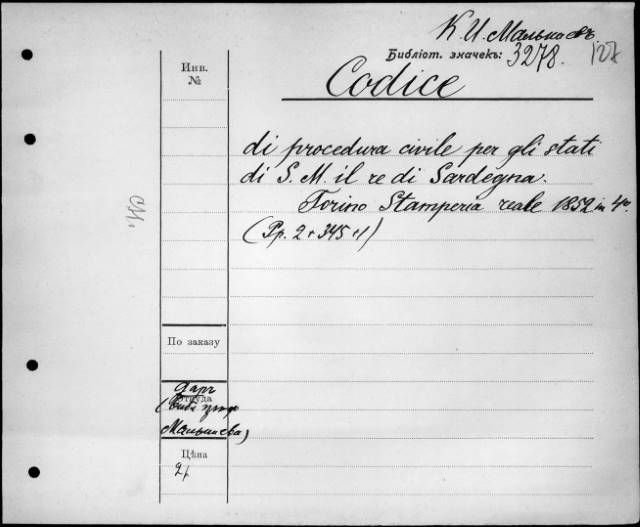 К. И. Малышевъ.
Библіот. значекъ: 3278. 127
Инв.
№
Codice
di procedura civile per gli stati
di S. M. il re di Sardegna.
Torino Stamperia reale 1852 in 4º.
(Pp. 2+345+1)
По заказу
даръ
Откуда
Малышева)
Цѣна